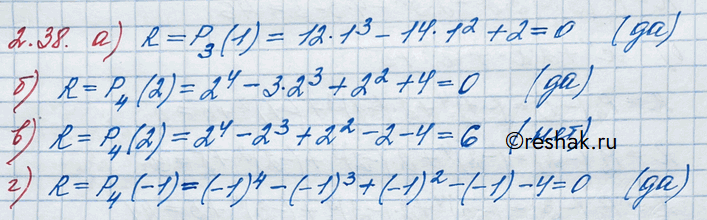 2.38. а) R = P₃(1) = 12·1³ - 14·1² + 2 = 0 (да)
б) R = P₄(2) = 2⁴ - 3·2³ + 2² + 4 = 0 (да)
в) R = P₄(2) = 2⁴ - 2³ + 2² - 2 - 4 = 6 (нет)
©reshak.ru
г) R = P₄(-1) = (-1)⁴ - (-1)³ + (-1)² - (-1) - 4 = 0 (да)